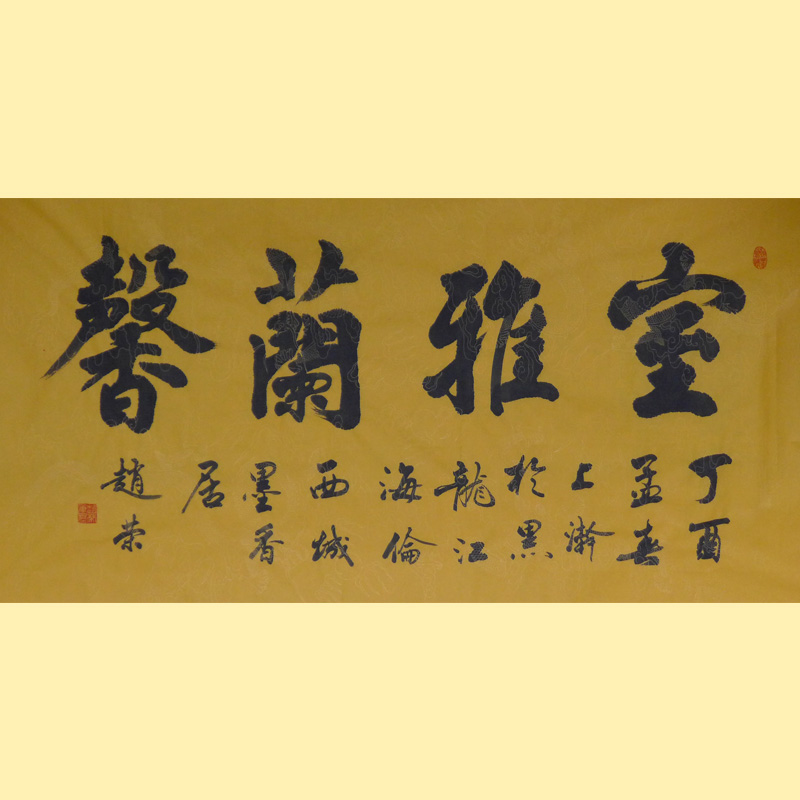 室雅蘭馨
丁酉
孟春
上瀚
於黑
龍江
海倫
西城
墨香
居
趙荣